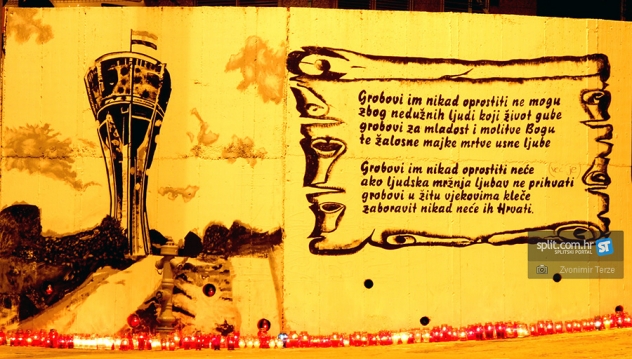 Grobovi im nikad oprostiti ne mogu
zbog nedužnih ljudi koji život gube
grobovi za mladost i molitve Bogu
te žalosne majke mrtve usne ljube
Grobovi im nikad oprostiti neće
ako ljudska mržnja ljubav ne prihvati
grobovi u žitu vjekovima kleče
zaboravit nikad neće ih Hrvati.
split.com.hr ST
SPLITSKI PORTAL
Zvonimir Terze